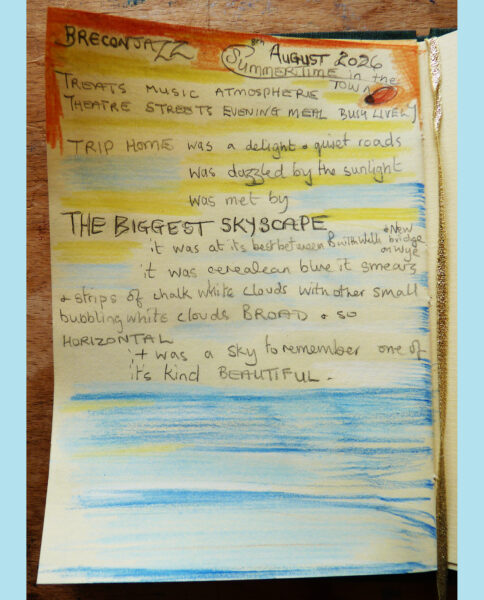 BRECON JAZZ 8TH AUGUST 2026
SUMMERTIME in the
TOWN
TREATS MUSIC ATMOSPHERIE
THEATRE STREETS EVENING MEAL BUSY LIVELY
TRIP HOME was a delight & quiet roads
was dazzled by the sunlight
was met by
THE BIGGEST SKYSCAPE
it was at its best between Builth Wells & New bridge on Wye
it was cerealean blue it smears
& strips of chalk white clouds with other small
bubbling white clouds BROAD & so
HORIZONTAL
it was a sky to remember one of
it's kind BEAUTIFUL.